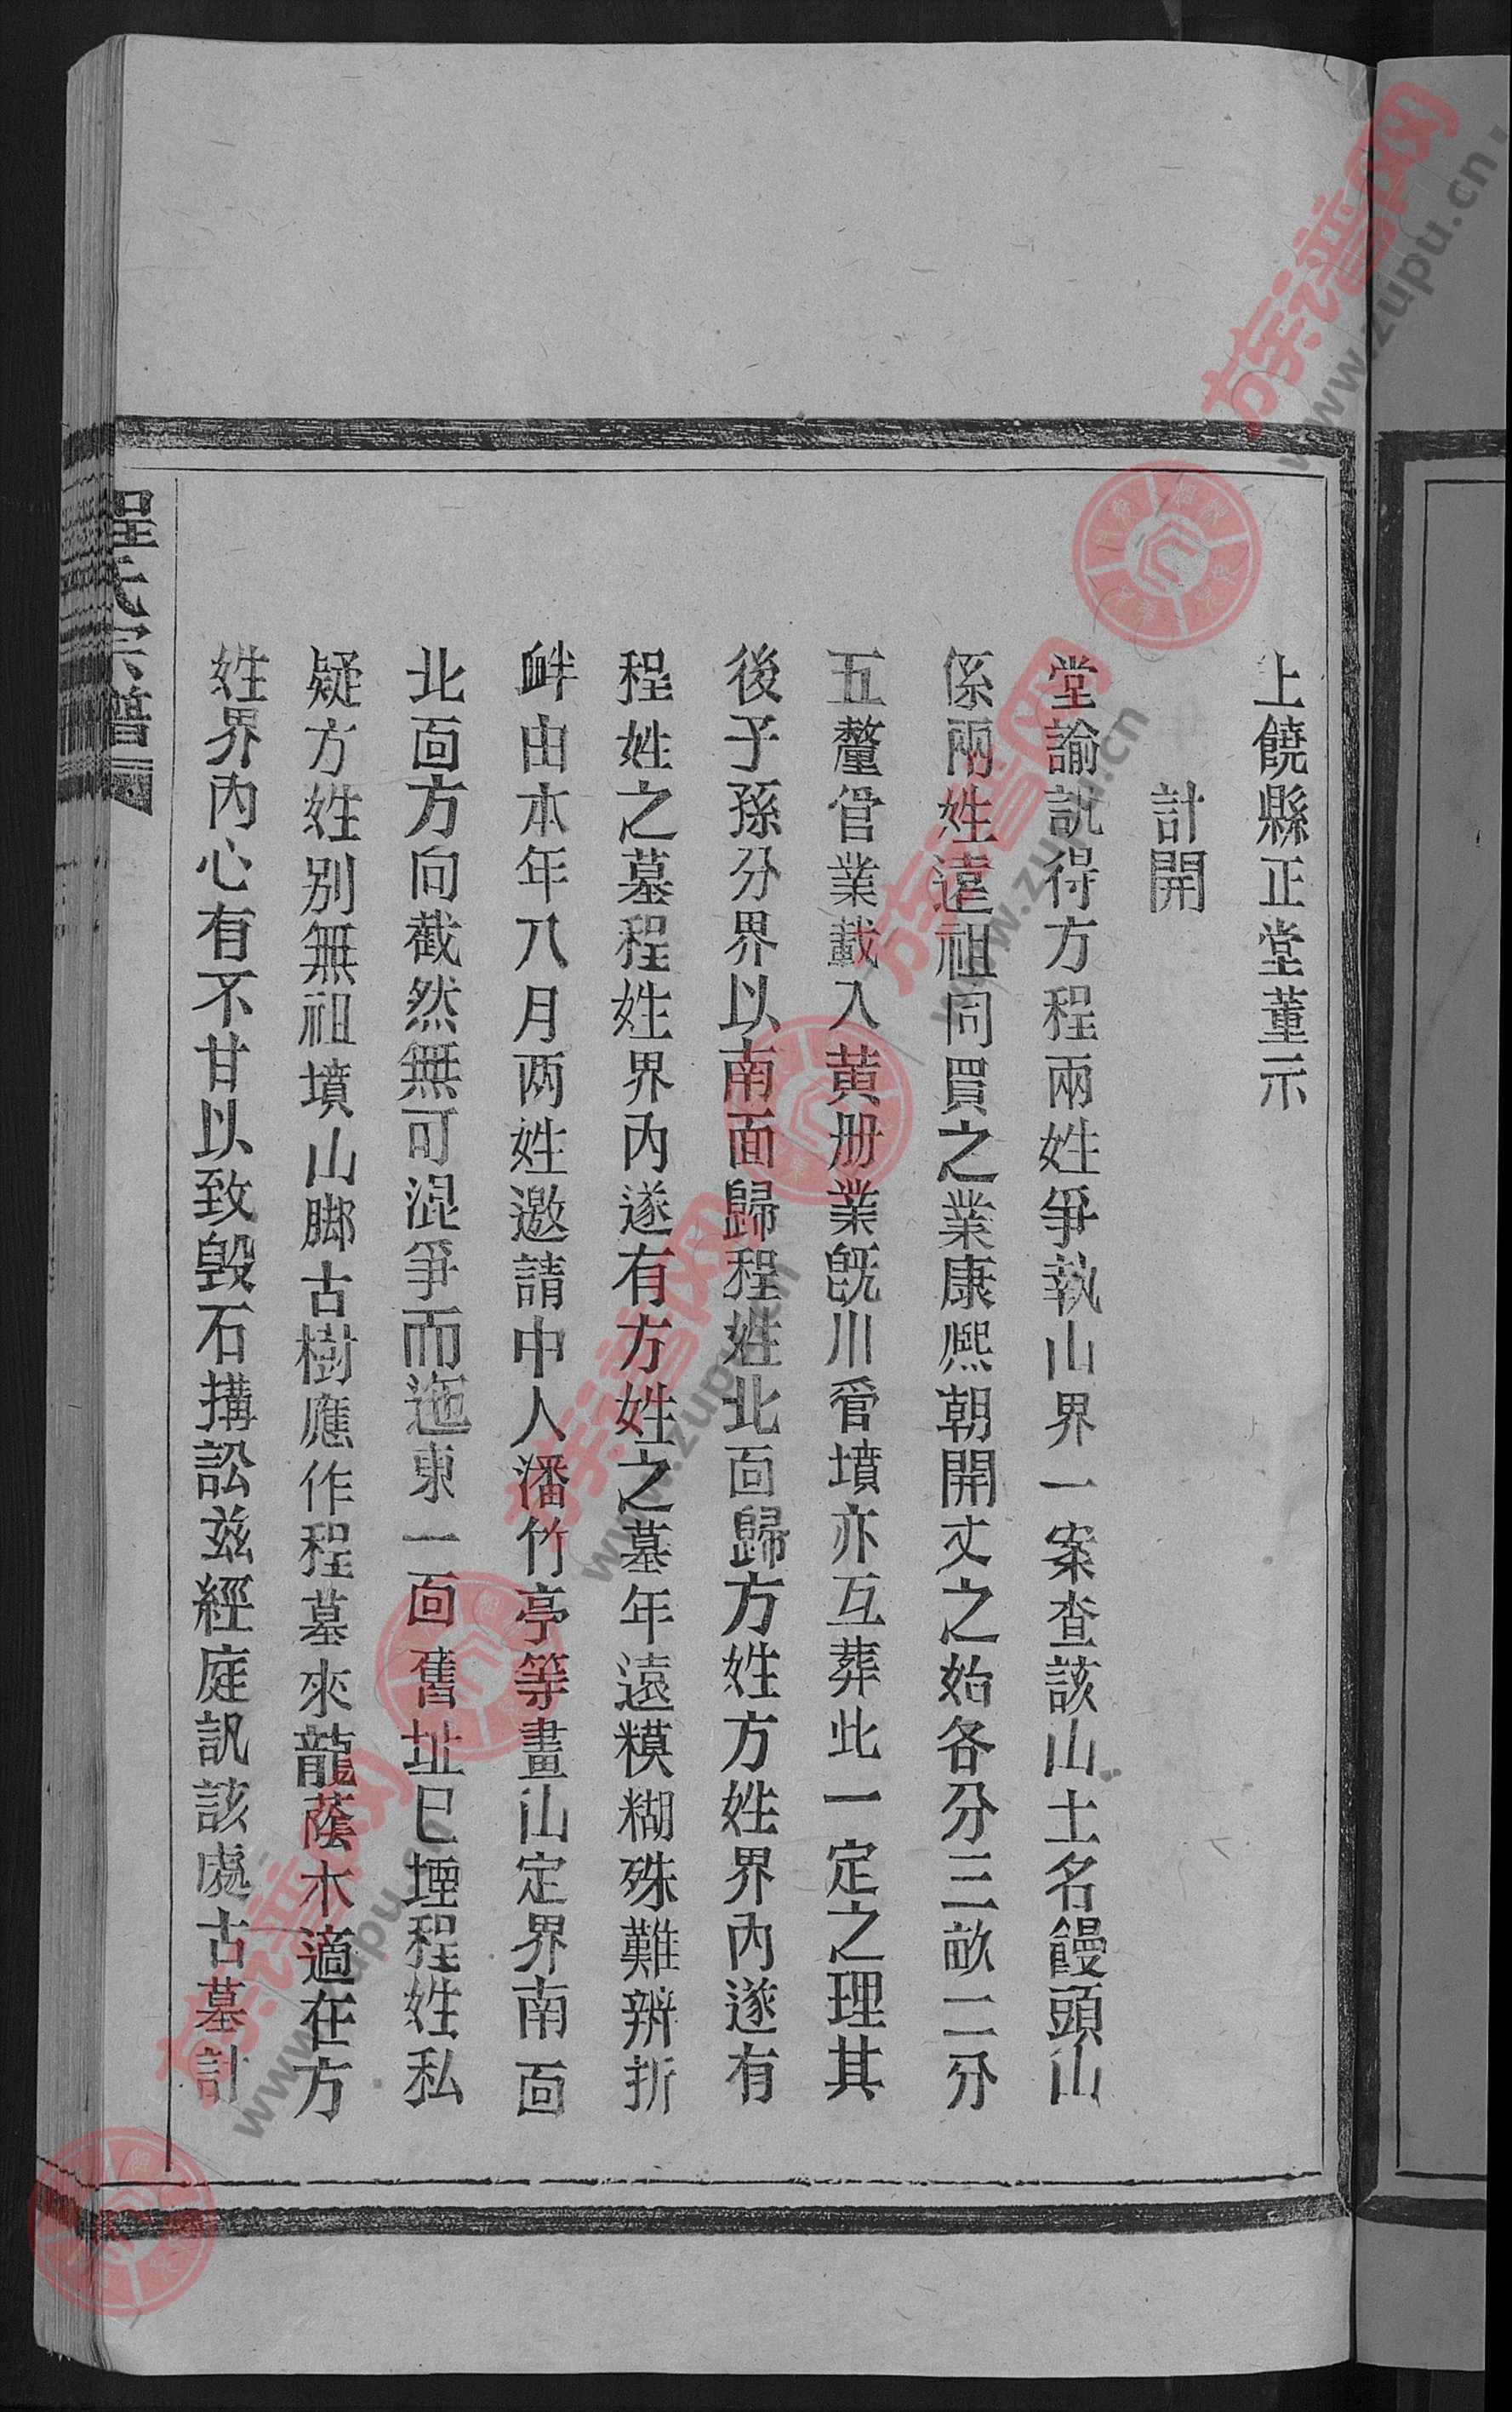 上饒縣正堂董示
計開
堂諭訊得方程兩姓爭執山界一案查該山土名饅頭山
係兩姓遠祖同買之業康熙朝開丈之始各分三畝二分
五釐管業載入黃册業旣川管墳亦互葬此一定之理其
後子孫分界以南面歸程姓北面歸方姓方姓界內遂有
程姓之墓程姓界內遂有方姓之墓年遠糢糊殊難辨折
衅由本年八月两姓邀請中人潘竹亭等畫山定界南面
北面方向截然無可混爭而迤東一面舊址已堙程姓私
疑方姓別無祖墳山脚古樹應作程墓來龍蔭木適在方
姓界內心有不甘以致毀石搆訟茲經庭訊該處古墓計
程氏宗譜
族谱网
www.zupu.cn
族谱网
www.zupu.cn
族谱网
www.zupu.cn
族谱网
www.zupu.cn